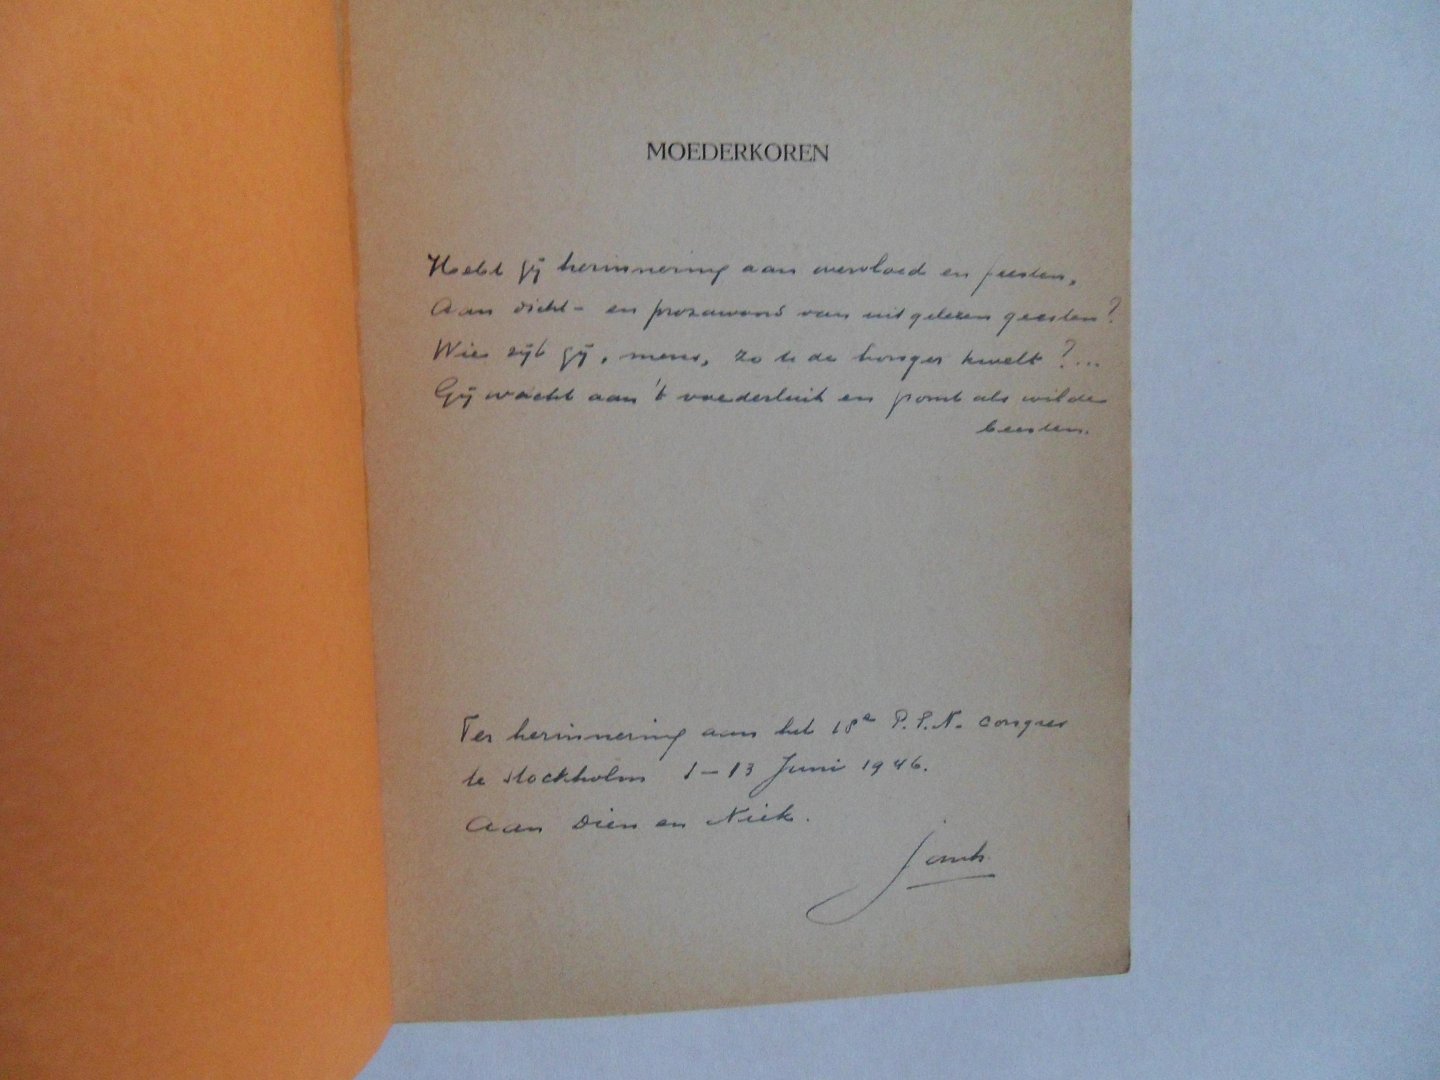 MOEDERKOREN
Hebt gij herinnering aan overvloed en feesten,
Aan dicht- en prozawoord van uitgelezen geesten?
Wie zijt gij, mens, zo u de honger kwelt?...
Gij wacht aan 't voederluik en gromt als wilde
beesten.
Ter herinnering aan het 18e P.E.N. congres
te Stockholm 1-13 Juni 1946.
Aan Dien en Niek.